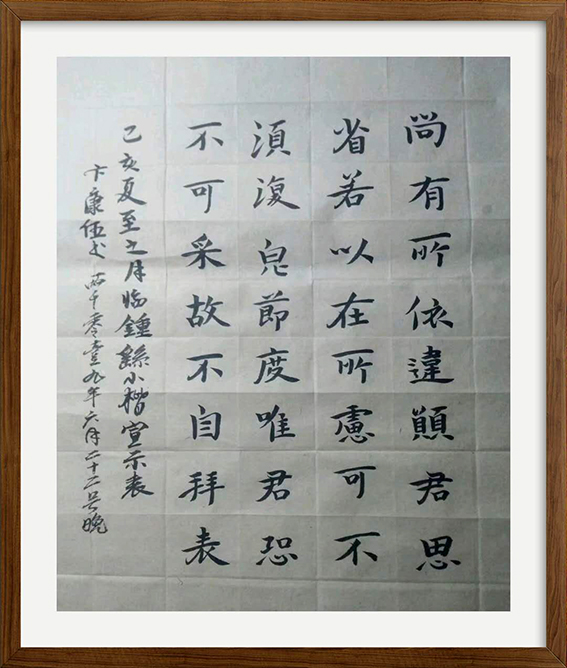 尚有所依違願君思
省若以在所慮可不
須復皃節度唯君恐
不可采故不自拜表
己亥夏至之月临鍾繇小楷宣示表
卞康伍书 两千零壹九年六月二十二号晚